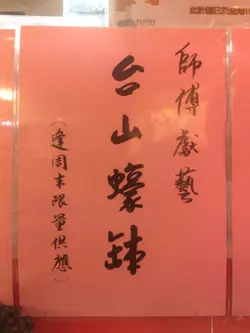 師傅獻藝
台山蠔缽
（逢周末限量供應）